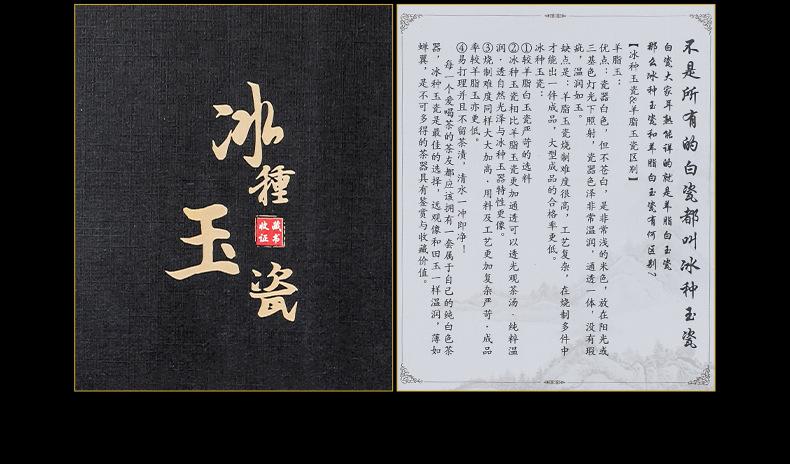 冰種
玉瓷
收藏
证书
不是所有的白瓷都叫冰种玉瓷
白瓷大家耳熟能详的就是羊脂白玉瓷
那么冰种玉瓷和羊脂白玉瓷有何区别？
【冰种玉瓷&羊脂玉瓷区别】
羊脂玉：
优点：瓷器白色，但不苍白，是非常浅的米色，放在阳光或
三基色灯光下照射，瓷器色泽非常温润，通透一体，没有瑕
疵，温润如玉。
缺点是：羊脂玉瓷烧制难度很高，工艺复杂，在烧制多件中
才能出一件成品，大型成品的合格率更低。
冰种玉瓷：
①较羊脂白玉瓷严苛的选料
②冰种玉瓷相比羊脂玉瓷更加通透可以透光观茶汤·纯粹温
润·透自然光泽与冰种玉器特性更像。
③烧制难度同样大大加高·用料及工艺更加复杂严苛·成品
率较羊脂玉亦更低。
④易打理并且不留茶渍，清水一冲即净！
每一个爱喝茶的茶友都应该拥有一套属于自己的纯白色茶
器，冰种玉瓷是最佳的选择，远观像和田玉一样温润，薄如
蝉翼，是不可多得的茶器具有鉴赏与收藏价值。